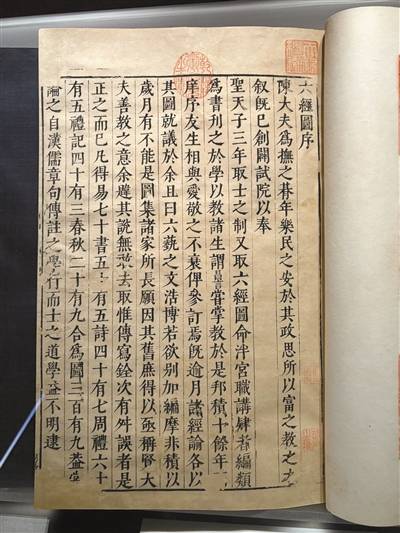 六經圖序
陳大夫爲撫之朞年樂民之安於其政思所以富之教之之
叙旣已創闢試院以奉
聖天子三年取士之制又取六經圖命泮宮職講肄者編類
爲書刋之於學以教諸生謂嘗掌教於是邦積十餘年
庠序友生相與愛敬之不衰俾參訂焉旣逾月諸經論各以
其圖就議於余且曰六藝之文浩博若欲別加編摩非積以
歲月有不能是圖集諸家所長願因其舊庶得以亟稱賢大
夫善教之意余韙其說無敢去取惟傳寫銓次有舛誤者是
正之而已凡得易七十書五十有五詩四十有七周禮六十
有五禮記四十有三春秋二十有九合爲圖三百有九蓋嘗
論之自漢儒章句傳註之學行而士之道學益不明逮